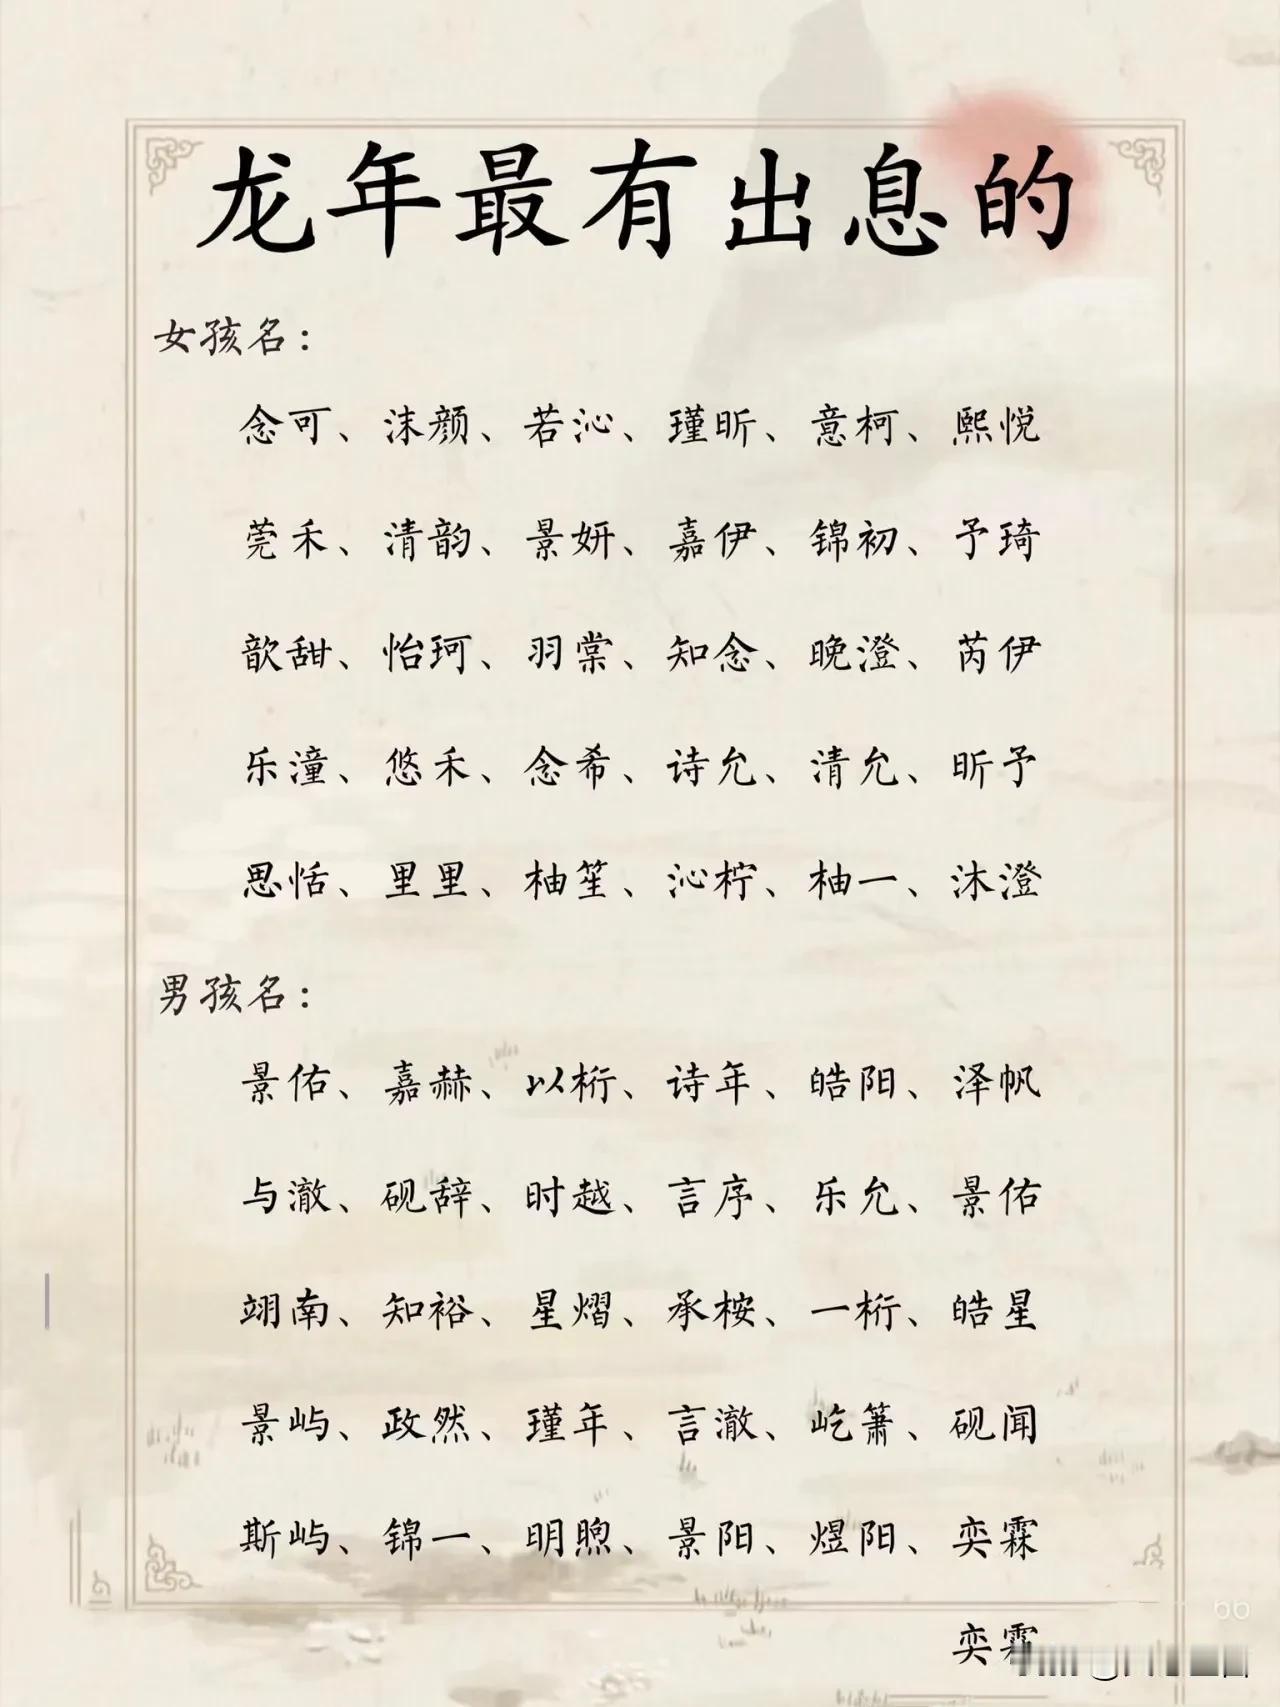 龙年最有出息的
女孩名：
念可、沫颜、若沁、瑾昕、意柯、熙悦
莞禾、清韵、景妍、嘉伊、锦初、予琦
歆甜、怡珂、羽棠、知念、晚澄、芮伊
乐潼、悠禾、念希、诗允、清允、昕予
思恬、里里、柚笙、沁柠、柚一、沐澄
男孩名：
景佑、嘉赫、以桁、诗年、皓阳、泽帆
与澈、砚辞、时越、言序、乐允、景佑
翊南、知裕、星熠、承桉、一桁、皓星
景屿、政然、瑾年、言澈、屹箫、砚闻
斯屿、锦一、明煦、景阳、煜阳、奕霖
奕霖